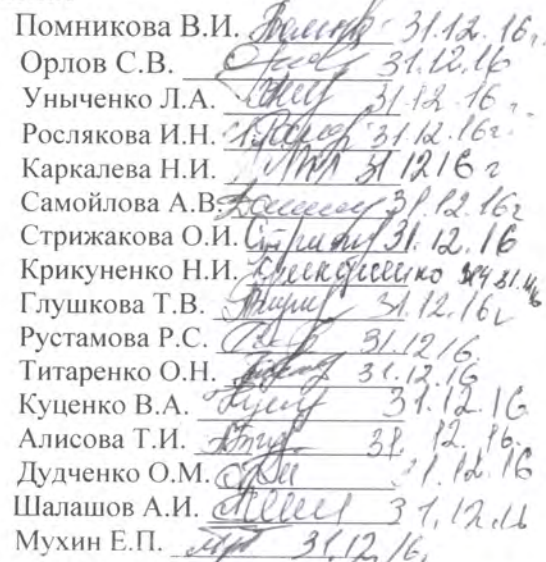 Помникова В.И. 31.12.16г.
Орлов С.В. 31.12.16
Уныченко Л.А. 31.12.16
Рослякова И.Н. 31.12.16г.
Каркалева Н.И. 31 12 16 г
Самойлова А.В. 31.12.16г
Стрижакова О.И. 31.12.16
Крикуненко Н.И. Крикуненко
Глушкова Т.В. 31.12.16
Рустамова Р.С. 31.12 16.
Титаренко О.Н. 31.12.16
Куценко В.А. 31.12.16
Алисова Т.И. 31. 12. 16.
Дудченко О.М. 31.12.16
Шалашов А.И. 31.12.16
Мухин Е.П. 31.12.16.